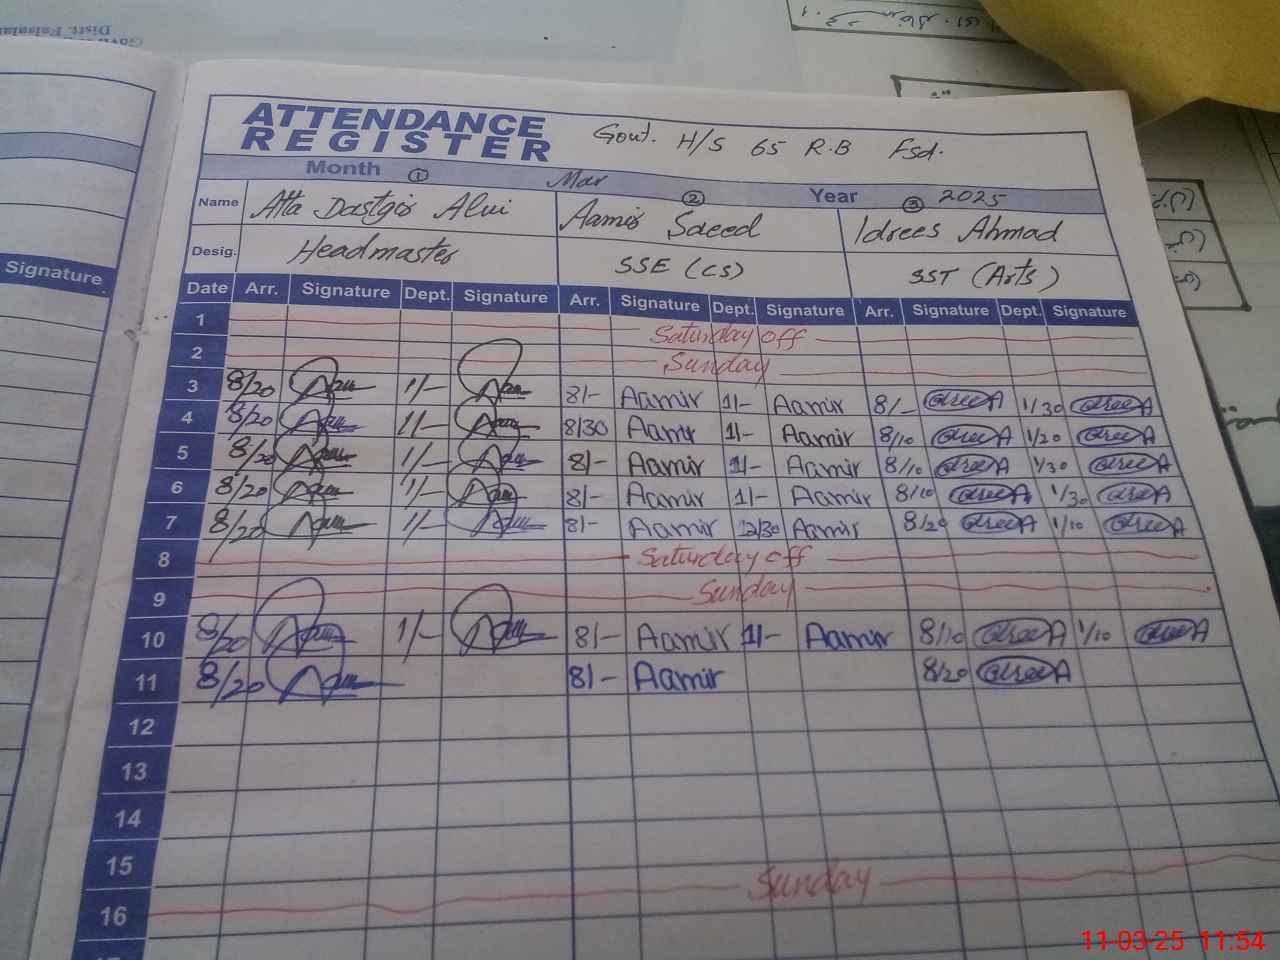 Distt. Faisalabad
ATTENDANCE
REGISTER
Govt. H/S 65 R.B Fsd.
Month Mar Year 2025
① ② ③
Name Atta Dastgir Alvi Aamir Saeed Idrees Ahmad
Desig. Headmaster SSE (CS) SST (Arts)
Signature
Date Arr. Signature Dept. Signature Arr. Signature Dept. Signature Arr. Signature Dept. Signature
1 Saturday off
2 Sunday
3 8/20 1/- 8/- Aamir 1/- Aamir 8/- 1/30
4 8/20 1/- 8/30 Aamir 1/- Aamir 8/10 1/20
5 8/20 1/- 8/- Aamir 1/- Aamir 8/10 1/30
6 8/20 1/- 8/- Aamir 1/- Aamir 8/10 1/30
7 8/20 1/- 8/- Aamir 12/30 Aamir 8/20 1/10
8 Saturday off
9 Sunday
10 8/20 1/- 8/- Aamir 1/- Aamir 8/10 1/10
11 8/20 8/- Aamir 8/20
12
13
14
15
16 Sunday
11-03-25 11:54